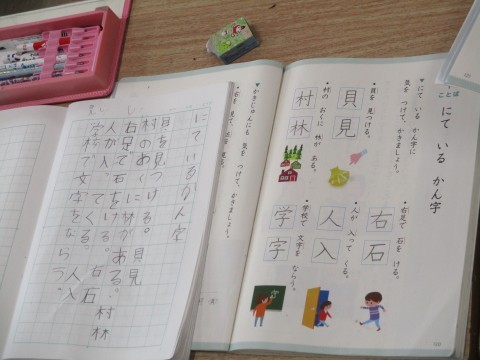 ことば
にて いる かん字
▼にて いる かん字に
気を つけて、かきましょう。
・貝を 見つける。
貝
見
・村の おくに 林が ある。
村
林
・右足で 石を ける。
右
石
・人が 入って くる。
人
入
・学校で 文字を ならう。
学
字
▼かきじゅんにも 気を つけて、かきましょう。
にているかん字
貝を見つける。 貝見
村のおくに林がある。 村林
右足で石をける。 右石
人が入ってくる。 人入
学校で文字をならう。